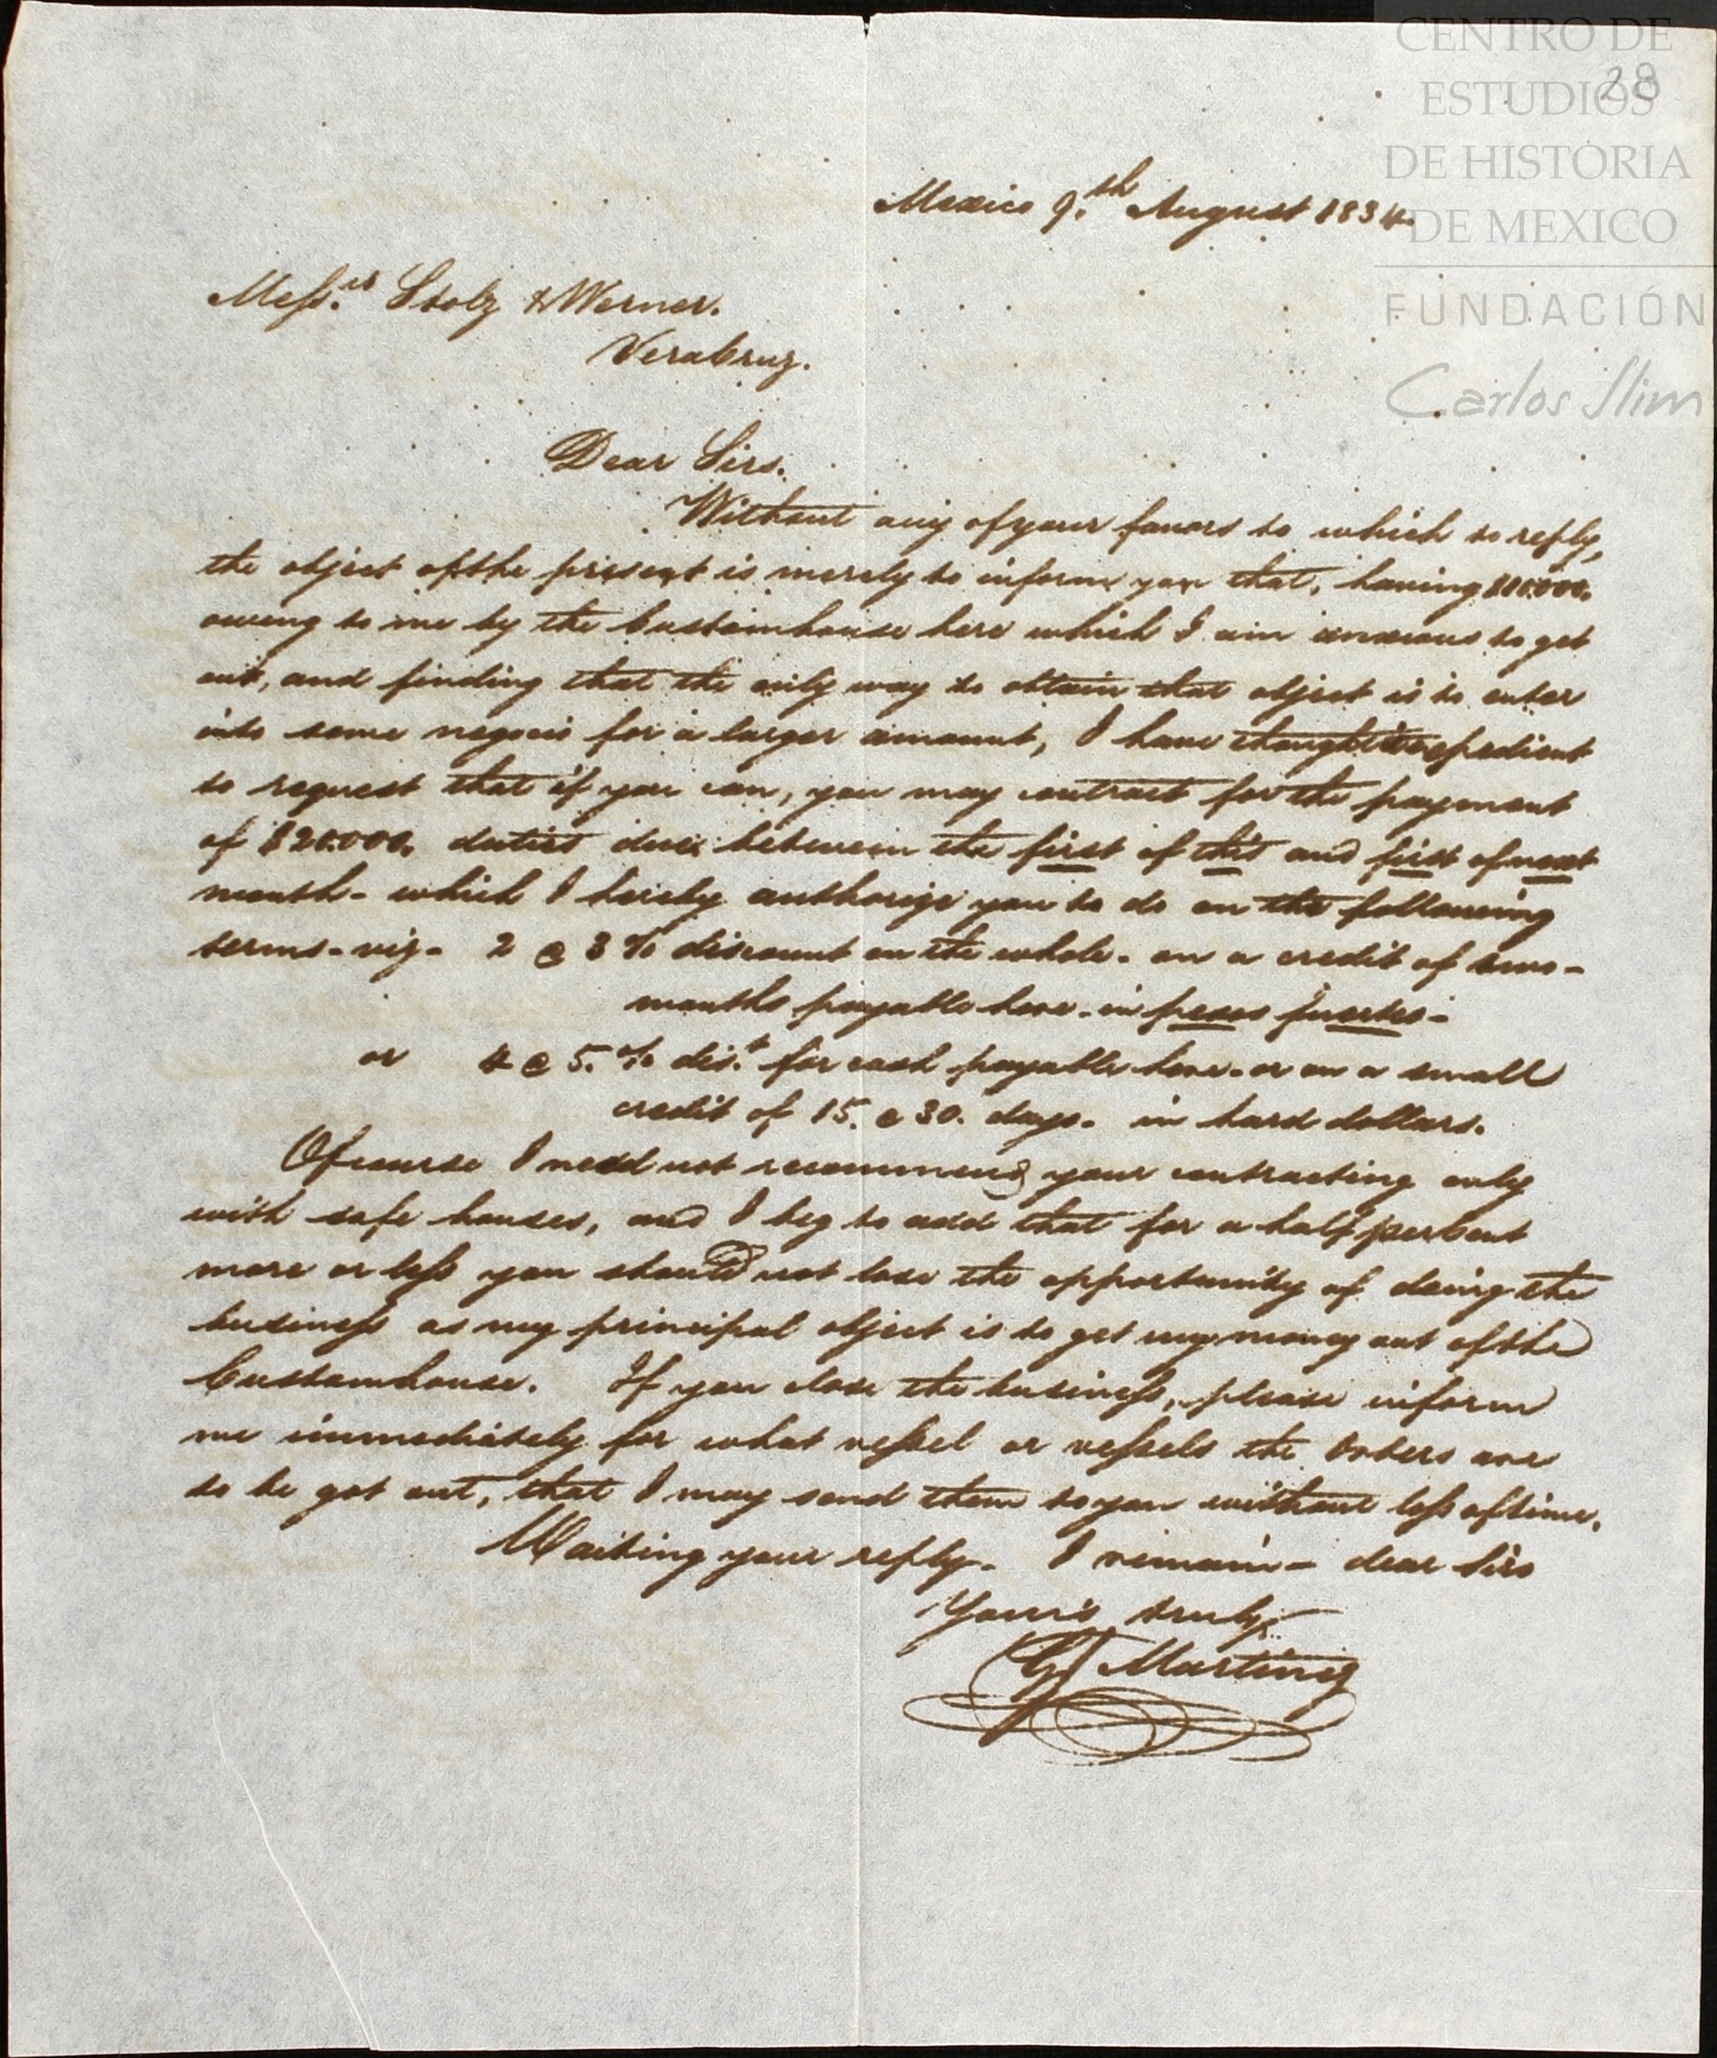 CENTRO DE
ESTUDIOS
DE HISTORIA
DE MEXICO
FUNDACIÓN
Carlos Slim
28
Mexico 9.th August 1834.
Mess.rs Stolz & Werner.
VeraCruz.
Dear Sirs.
Without any of your favors to which to reply,
the object of the present is merely to inform you that, having $10.000.
owing to me by the Customhouse here which I am anxious to get
out, and finding that the only way to obtain that object is to enter
into some negocio for a larger amount, I have thought it expedient
to request that if you can, you may contract for the payment
of $20.000. duties due between the first of this and first of next
month - which I hereby authorize you to do on the following
terms - viz - 2 @ 3 % discount on the whole - on a credit of two -
months payable here - in pesos fuertes -
or 4 @ 5. % dis.t for cash payable here - or on a small
credit of 15. @ 30. days - in hard dollars.
Of course I need not recommend your contracting only
with safe houses, and I beg to add that for a half perCent
more or less you should not lose the opportunity of doing the
business as my principal object is to get my money out of the
Customhouse. If you close the business, please inform
me immediately for what vessel or vessels the Orders are
to be got out, that I may send them to you without loss of time.
Waiting your reply - I remain - dear Sirs
Yours truly
Martinez